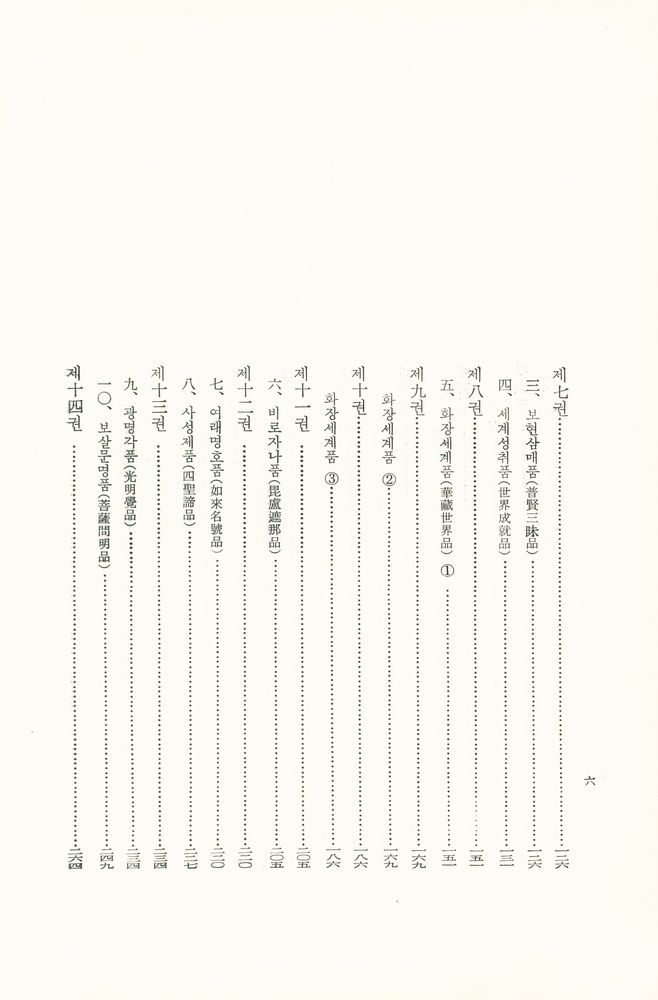 제七권 一二六
三、보현삼매품(普賢三昧品) 一二六
四、세계성취품(世界成就品) 一三一
제八권 一五一
五、화장세계품(華藏世界品) ① 一五一
제九권 一六九
화장세계품 ② 一六九
제十권 一八六
화장세계품 ③ 一八六
제十一권 二〇五
六、비로자나품(毘盧遮那品) 二〇五
제十二권 二二〇
七、여래명호품(如來名號品) 二二〇
八、사성제품(四聖諦品) 二二七
제十三권 二三四
九、광명각품(光明覺品) 二三四
一〇、보살문명품(菩薩問明品) 二四九
제十四권 二六四
六